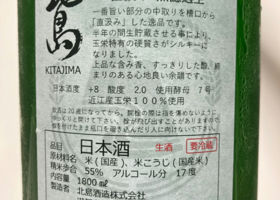 一番旨い部分の中取りを槽口から
「直汲み」した逸品です。
半年の間生貯蔵させる事により
玉栄特有の硬質さがシルキーに
なりました。
上品な含み香、すっきりした酸、締
まりのある心地良い余韻です。
島
KITAJIMA
日本酒度 +8 酸度 2.0 使用酵母 7号
近江産玉栄100%使用
飲酒は20歳になってから。
日本酒 生酒 要冷蔵
原材料名 米(国産)、米こうじ(国産米)
精米歩合 55% アルコール分 17度
内容量 1800㎖
北島酒造株式会社